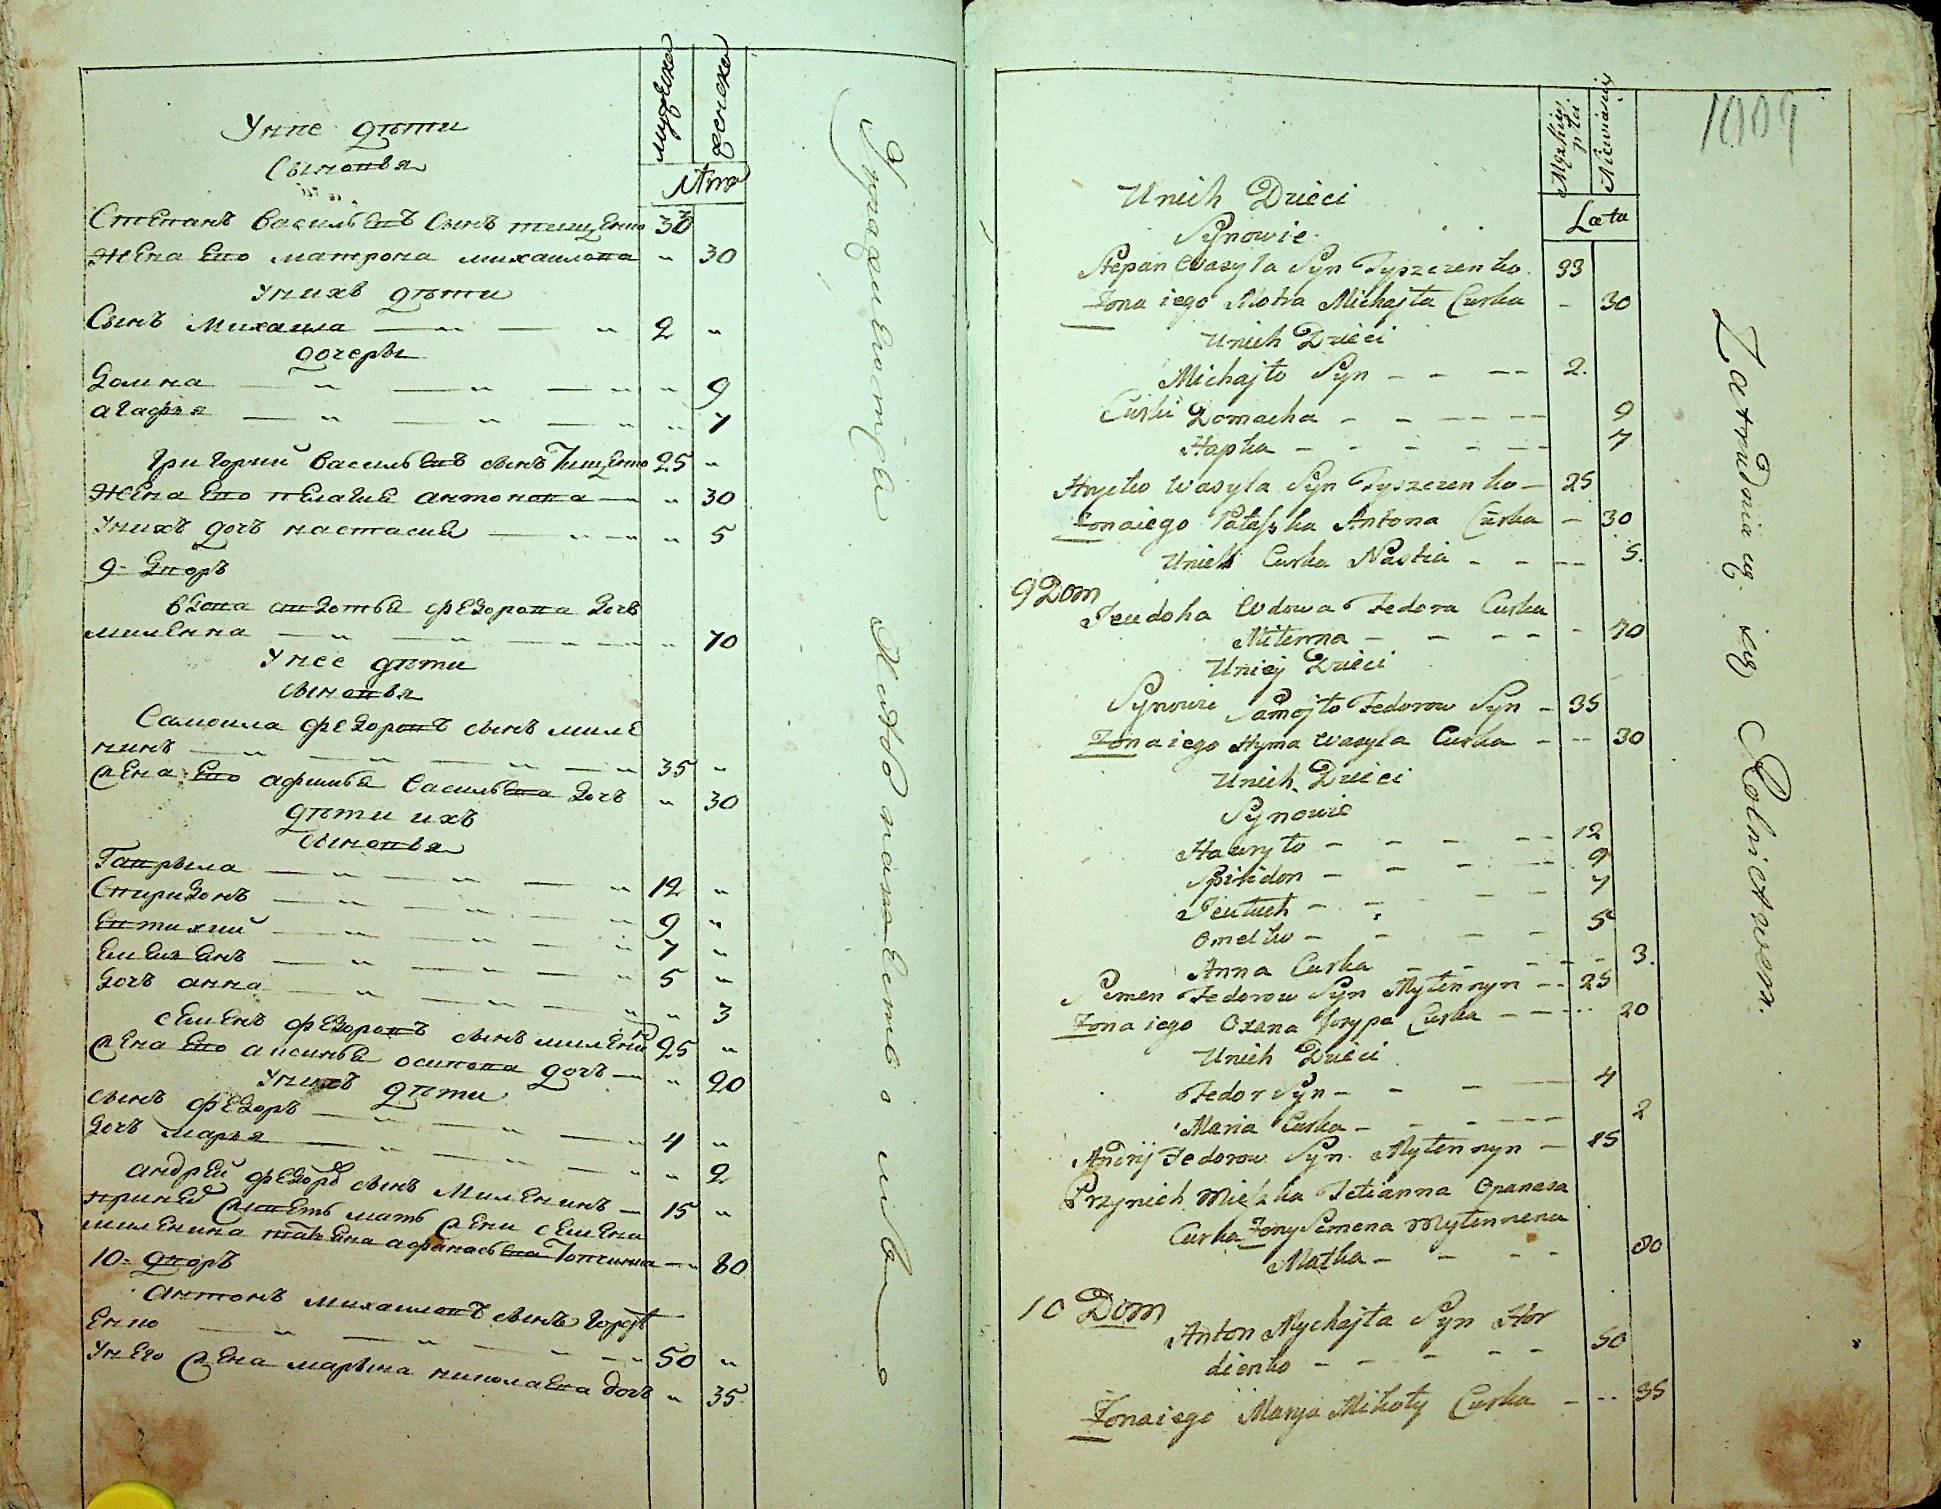 мужеска
женска
Лѣта
Унее дѣти
Сыновья
Степанъ Васильевъ сынъ тищенко 33
Жена Его матрона михаилова " 30
Унихъ дѣти
Сынъ Михаила 2 "
дочеры
Домна " 9
агафья " 7
Григорий Васильевъ сынъ Тищенко 25 "
Жена Его пелагия антонова " 30
Унихъ дочъ настасия " 5
9- Дворъ
вдова федорова дочъ
миленна " 70
Унее дѣти
сыновья
Самоила федоровъ сынъ миле
нинъ 35 "
жена Его афимья Васильева дочъ " 30
дѣти ихъ
сыновья
Гаврыла 12 "
Спиридонъ 9 "
Евтихий 7 "
Емельянъ 5 "
дочъ анна " 3
семенъ федоровъ сынъ миленинъ 25 "
жена Его аксинья осипова дочъ " 20
Унихъ дѣти
сынъ федоръ 4 "
дочъ марья " 2
андрей федоровъ сынъ Миленинъ 15 "
приней живетъ мать жени семена
миленина афанасьева " 80
10- дворъ
антонъ михаиловъ сынъ Горде
енко 50 "
Унего жена марьяна николаева дочъ " 35
Упражняются Хлебопашествомъ
1009
Męzkiey płci
Niewiasty
Lata
Unieh Dzieci
Synowie
Stepan Wasyla Syn Tyszczenko 33
Żona iego Motra Michajła Curka - 30
Unich Dzieci
Michajło Syn - - - - 2.
Curki Domacha - - - - 9
Hapka - - - - 7
Hryćko Wasyla Syn Tyszczenko - 25
Żona iego Pałaszka Antona Curka - 30
Unich Curka Nastia - - - - 5.
9 Dom
Jeudoha Wdowa Fedora Curka
Milenna - - - - 70
Uniej Dzieci
Synowie Samojło Fedorow Syn - 35
Żona iego Hyma Wasyla Curka - - - 30
Unich Dzieci
Synowie
Hawryło - - - - 12
Spiridon - - - - 9
Jeutuch - - - - 7
Omelko - - - - 5
Anna Curka - - - - 3.
Semen Fedorow Syn Mylennyn - - 25
Żona iego Oxana Josypa Curka - - - 20
Unich Dzieci
Fedor Syn - - - - 4
Maria Curka - - - - 2
Andrij Fedorow Syn Mylennyn - 15
Przynich Mieszka Tetianna Opanasa
Curka Żony Semena Mylennena
Matka - - - - 80
10 Dom
Anton Mychajła Syn Hor
dienko - - - - 50
Żona iego Marya Mikoły Curka - - - 35
Zatrudniaią się Rolnictwem.